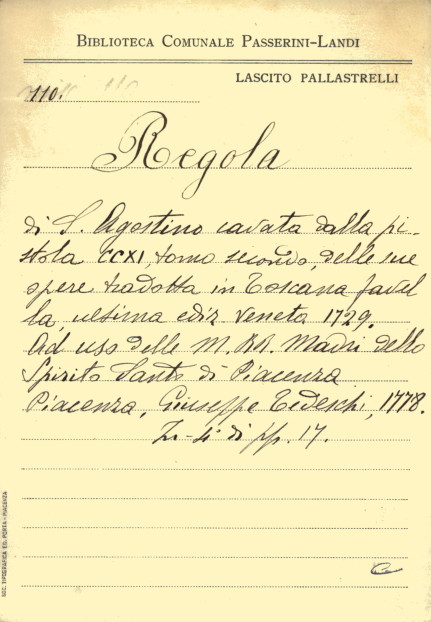 BIBLIOTECA COMUNALE PASSERINI-LANDI
LASCITO PALLASTRELLI
110.
Regola
di S. Agostino cavata dalla pi-
stola CCXI, tomo secondo, delle sue
opere tradotta in Toscana favel
la, ultima ediz Veneta 1729.
Ad uso delle M. RR. Madri dello
Spirito Santo di Piacenza
Piacenza, Giuseppe Tedeschi, 1778.
In-4 di pp. 17.
SOC. TIPOGRAFICA ED. PORTA - PIACENZA